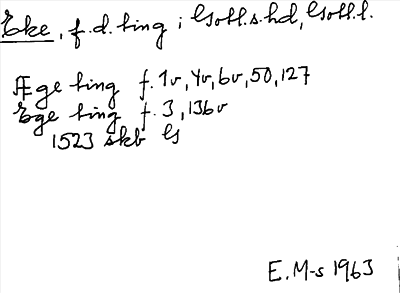 Eke, f.d. ting ; Gotl.s.hd, Gotl.l.
Æge ting f. 1v, 4v, 6v, 50, 127
Ege ting f. 3, 136v
1523 skb G
E. M-s 1963